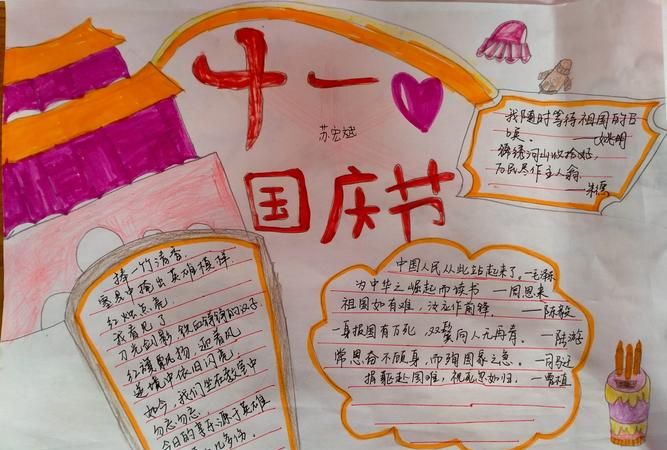 十一
苏宏斌
国庆节
我随时等待祖国的召
唤。——姚明
锦绣河山收拾好,
万民尽作主人翁。
朱德
捧一竹清香.
墨晨中掩出英雄模样
红烛点亮
我看见了
刀光剑影 铁血铮铮的汉子
红旗飘扬,迎着风
逆境中依旧闪亮
如今,我们坐在教室中
勿忘勿忘.
今日的幸乐源于英雄
中国人民从此站起来了。—毛泽东
为中华之崛起而读书 —周恩来
祖国如有难,汝应作前锋. —陈毅
一身报国有万死,双鬓向人无再青。 —陆游
常思奋不顾身,而殉国家之急. —司马迁
捐躯赴国难,视死忽如归. —曹植